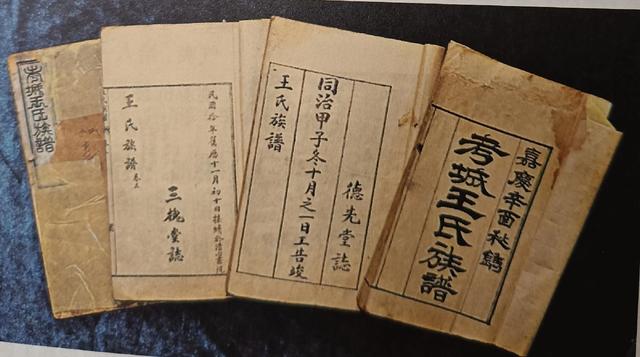 考城王氏族譜
民國拾年舊曆十一月初十日
王氏族譜
三槐堂誌
同治甲子冬十月之一日工告竣
王氏族譜
德先堂誌
嘉慶辛酉秋鐫
考城王氏族譜